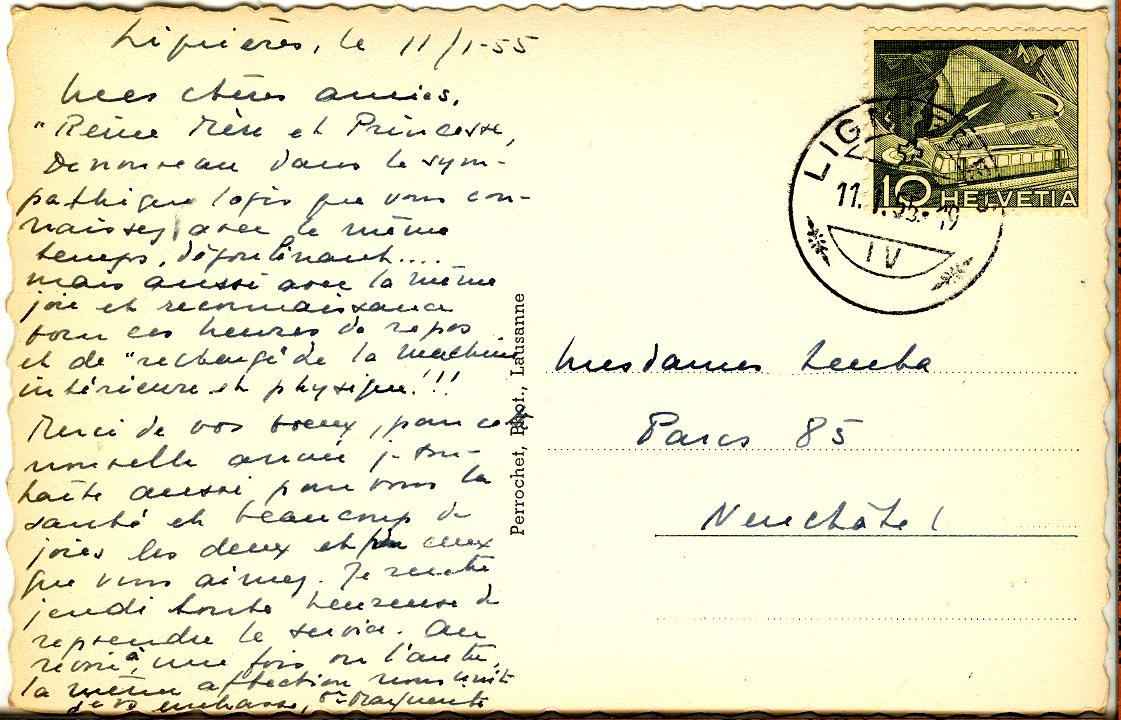 Lignières, le 11/1-55
Mes chères amies,
"Reine Mère et Princesse,
De nouveau dans le sym-
pathique logis que vous con-
naissez, avec le même
temps, dégoulinant....
mais aussi avec la même
joie et reconnaissance
pour ces heures de repos
et de "rechange" de la machine
intérieure et physique!!!
Merci de vos voeux, pour cette
nouvelle année je sou-
haite aussi pour vous la
santé et beaucoup de
joies les deux et pour ceux
que vous aimez. Je rentre
jeudi toute heureuse de
reprendre le service. Au
revoir à une fois ou l'autre,
la même affection nous unit
je vs embrasse, Sr Marguerite
Perrochet, Phot., Lausanne
10 HELVETIA
LIGNIÈRES
11. I. 55.-19
IV
Mesdames Leuba
Parcs 85
Neuchâtel